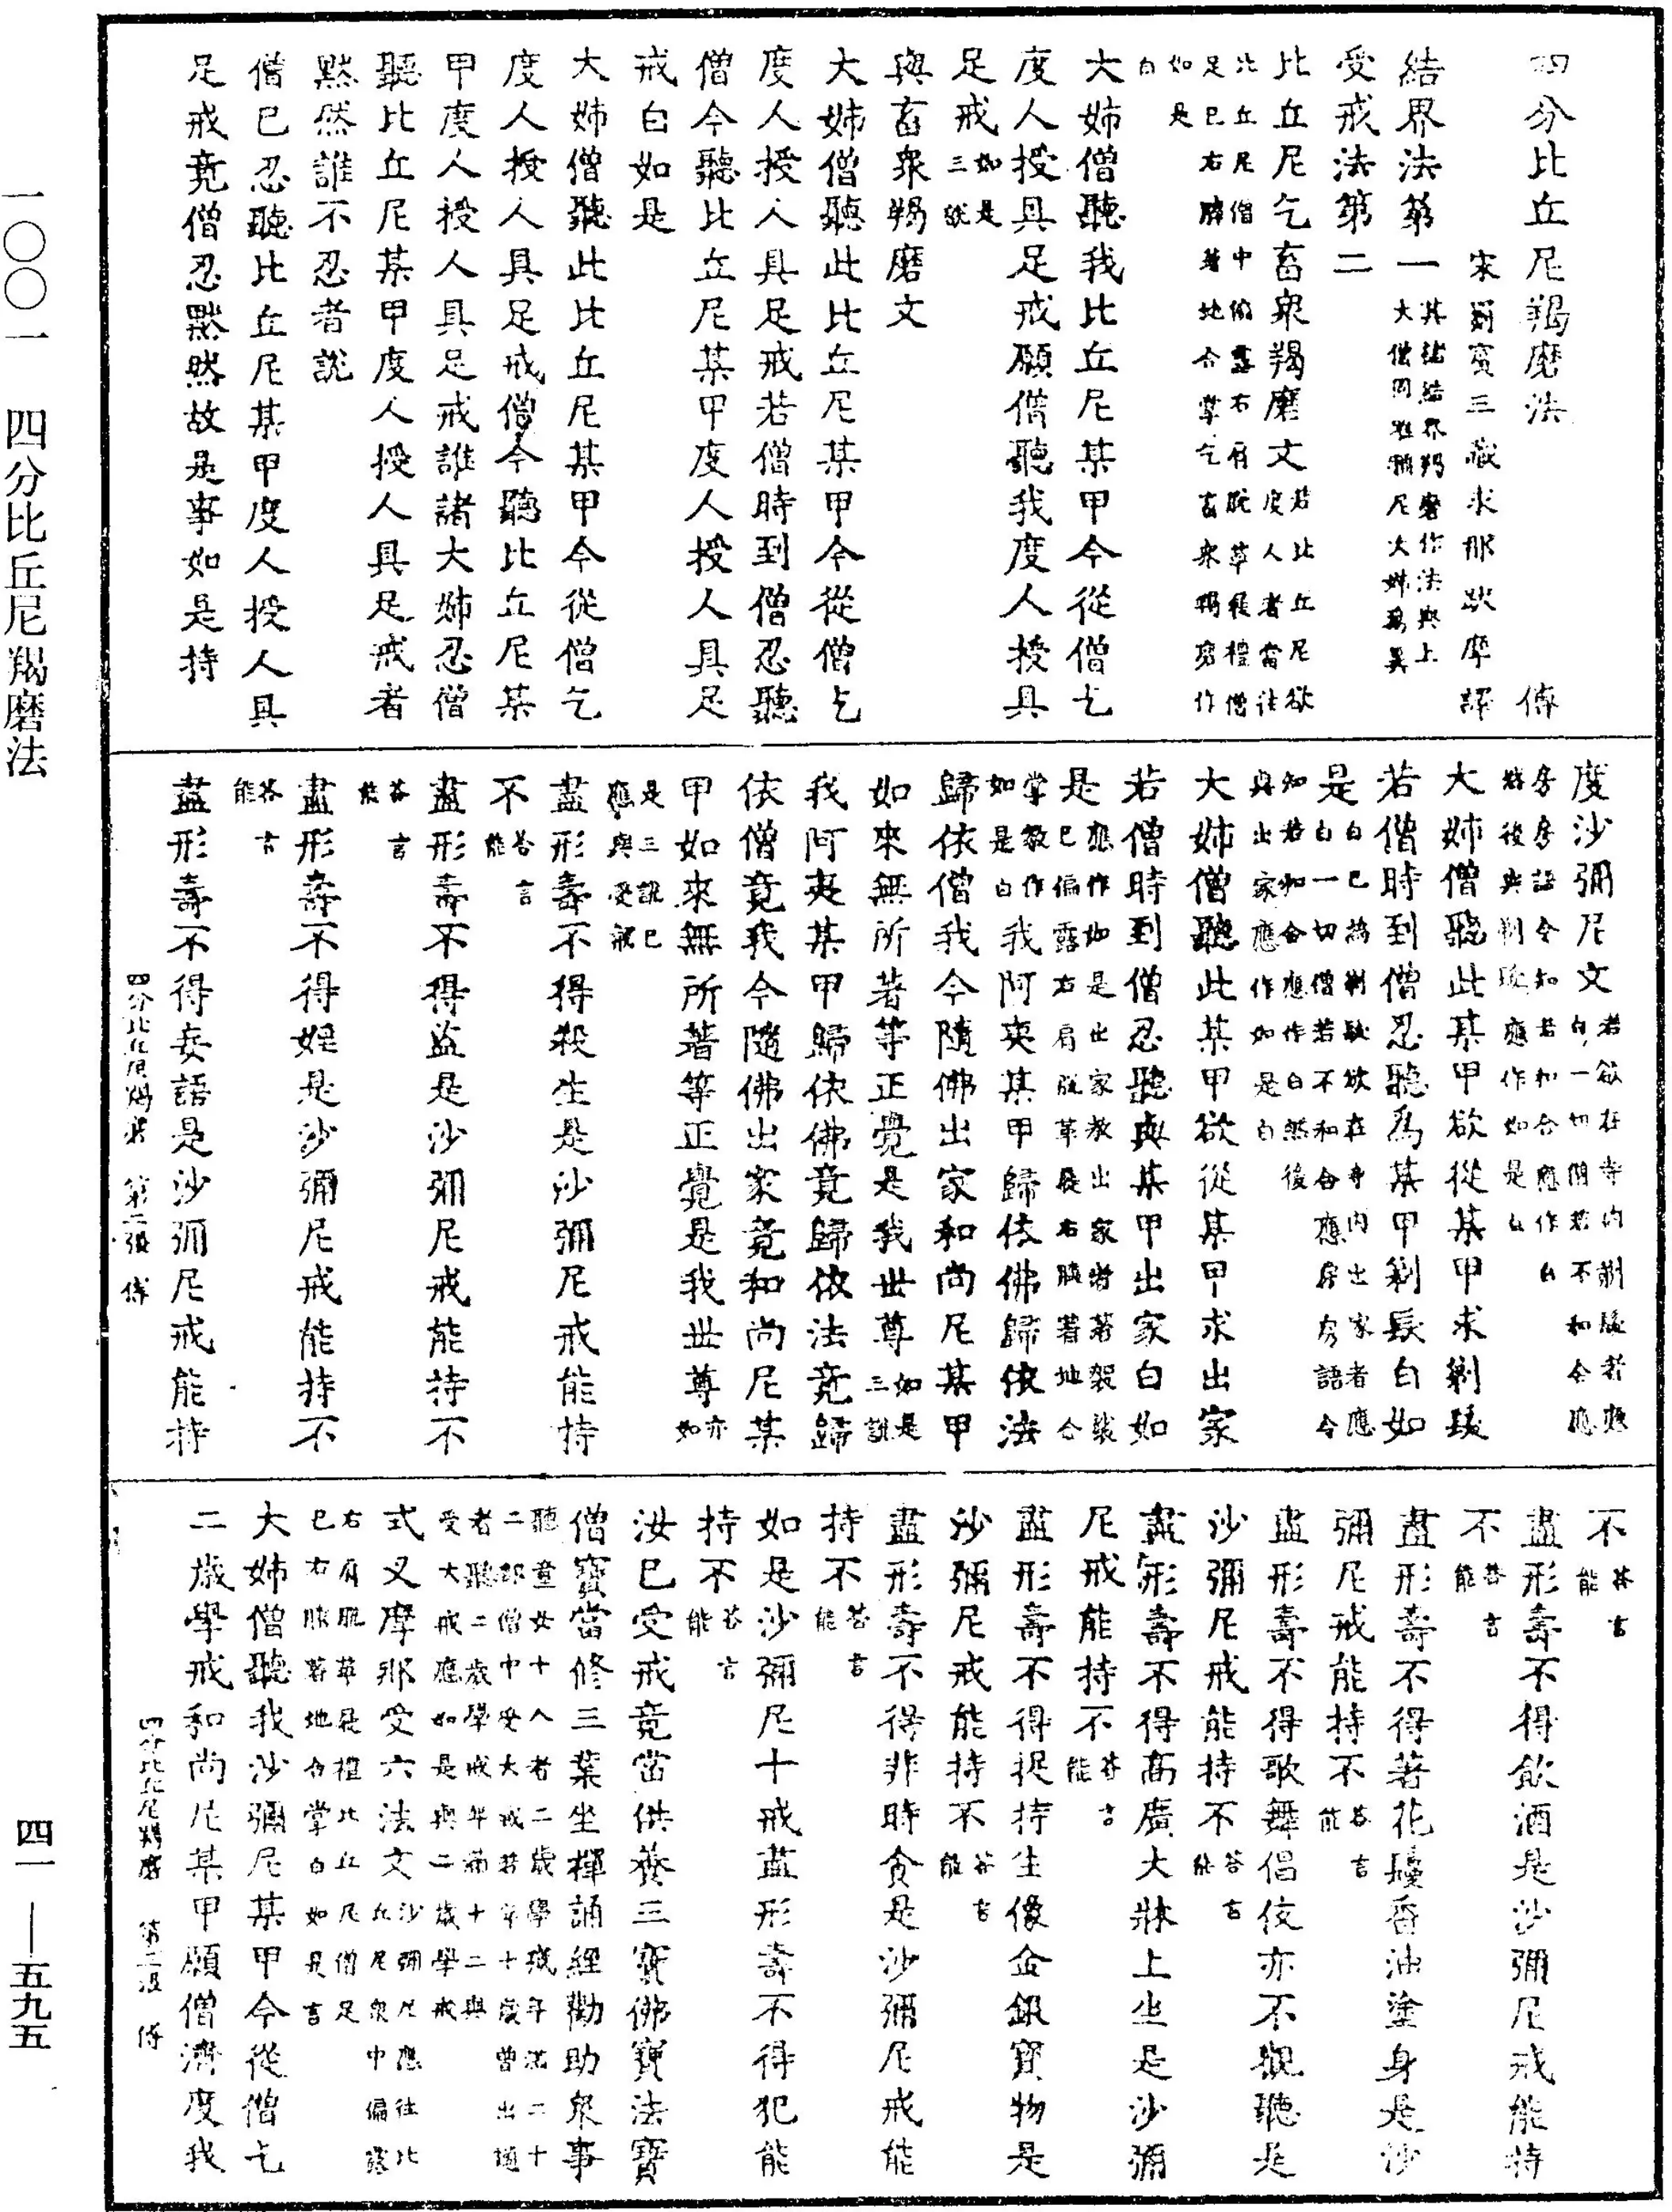 四分比丘尼羯磨法　傅
宋罽賓三藏求那跋摩譯
結界法第一其諸結界羯磨作法與上大僧同唯稱尼大姊爲異
受戒法第二
比丘尼乞畜衆羯磨文若比丘尼欲度人者當往
比丘尼僧中偏露右肩脫革屣禮僧
足已右膝著地合掌乞畜衆羯磨作
如是
白
大姊僧聽我比丘尼某甲今從僧乞
度人授具足戒願僧聽我度人授具
足戒如是三說
與畜衆羯磨文
大姊僧聽此比丘尼某甲今從僧乞
度人授人具足戒若僧時到僧忍聽
僧今聽比丘尼某甲度人授人具足
戒白如是
大姊僧聽此比丘尼某甲今從僧乞
度人授人具足戒僧今聽比丘尼某
甲度人授人具足戒誰諸大姊忍僧
聽比丘尼某甲度人授人具足戒者
默然誰不忍者說
僧已忍聽比丘尼某甲度人授人具
足戒竟僧忍默然故是事如是持
度沙彌尼文若欲在寺內剃髮者應白一切僧若不和合應
房房語令知若和合應作白
然後與剃髮應作如是白
大姊僧聽此某甲欲從某甲求剃髮
若僧時到僧忍聽爲某甲剃髮白如
是白已爲剃髮欲在寺內出家者應白一切僧若不和合應房房語令
知若和合應作白然後
與出家應作如是白
大姊僧聽此某甲欲從某甲求出家
若僧時到僧忍聽與某甲出家白如
是應作如是出家教出家者著袈裟已偏露右肩脫革屣右膝著地合
掌教作如是白我阿夷某甲歸依佛歸依法
歸依僧我今隨佛出家和尚尼某甲
如來無所著等正覺是我世尊如是三說
我阿夷某甲歸依佛竟歸依法竟歸
依僧竟我今隨佛出家竟和尚尼某
甲如來無所著等正覺是我世尊亦如
是三說已
應與受戒
盡形壽不得殺生是沙彌尼戒能持
不答言能
盡形壽不得盜是沙彌尼戒能持不
答言能
盡形壽不得婬是沙彌尼戒能持不
答言能
盡形壽不得妄語是沙彌尼戒能持
四分比丘尼羯磨　第二張　傅
不答言能
盡形壽不得飲酒是沙彌尼戒能持
不答言能
盡形壽不得著花鬘香油塗身是沙
彌尼戒能持不答言能
盡形壽不得歌舞倡伎亦不觀聽是
沙彌尼戒能持不答言能
盡形壽不得高廣大牀上坐是沙彌
尼戒能持不答言能
盡形壽不得捉持生像金銀寶物是
沙彌尼戒能持不答言能
盡形壽不得非時食是沙彌尼戒能
持不答言能
如是沙彌尼十戒盡形壽不得犯能
持不答言能
汝已受戒竟當供養三寶佛寶法寶
僧寶當修三業坐禪誦經勸助衆事
聽童女十八者二歲學戒年滿二十
二部僧中受大戒若年十歲曾出適
者聽二歲學戒年滿十二與
受大戒應如是與二歲學戒
式叉摩那受六法文沙彌尼應往比丘尼衆中偏露
右肩脫革屣禮比丘尼僧足
已右膝著地合掌白如是言
大姊僧聽我沙彌尼某甲今從僧乞
二歲學戒和尚尼某甲願僧濟度我
四分比丘尼羯磨　第三張　傅
一〇〇一　四分比丘尼羯磨法
四一——五九五